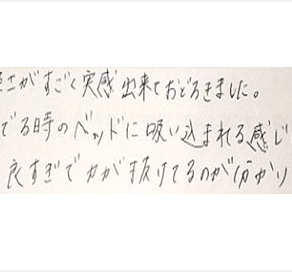 がすごく実感出来ておどろきました。
でる時のベッドに吸い込まれる感じ
良すぎて力が抜けてるのが分かり